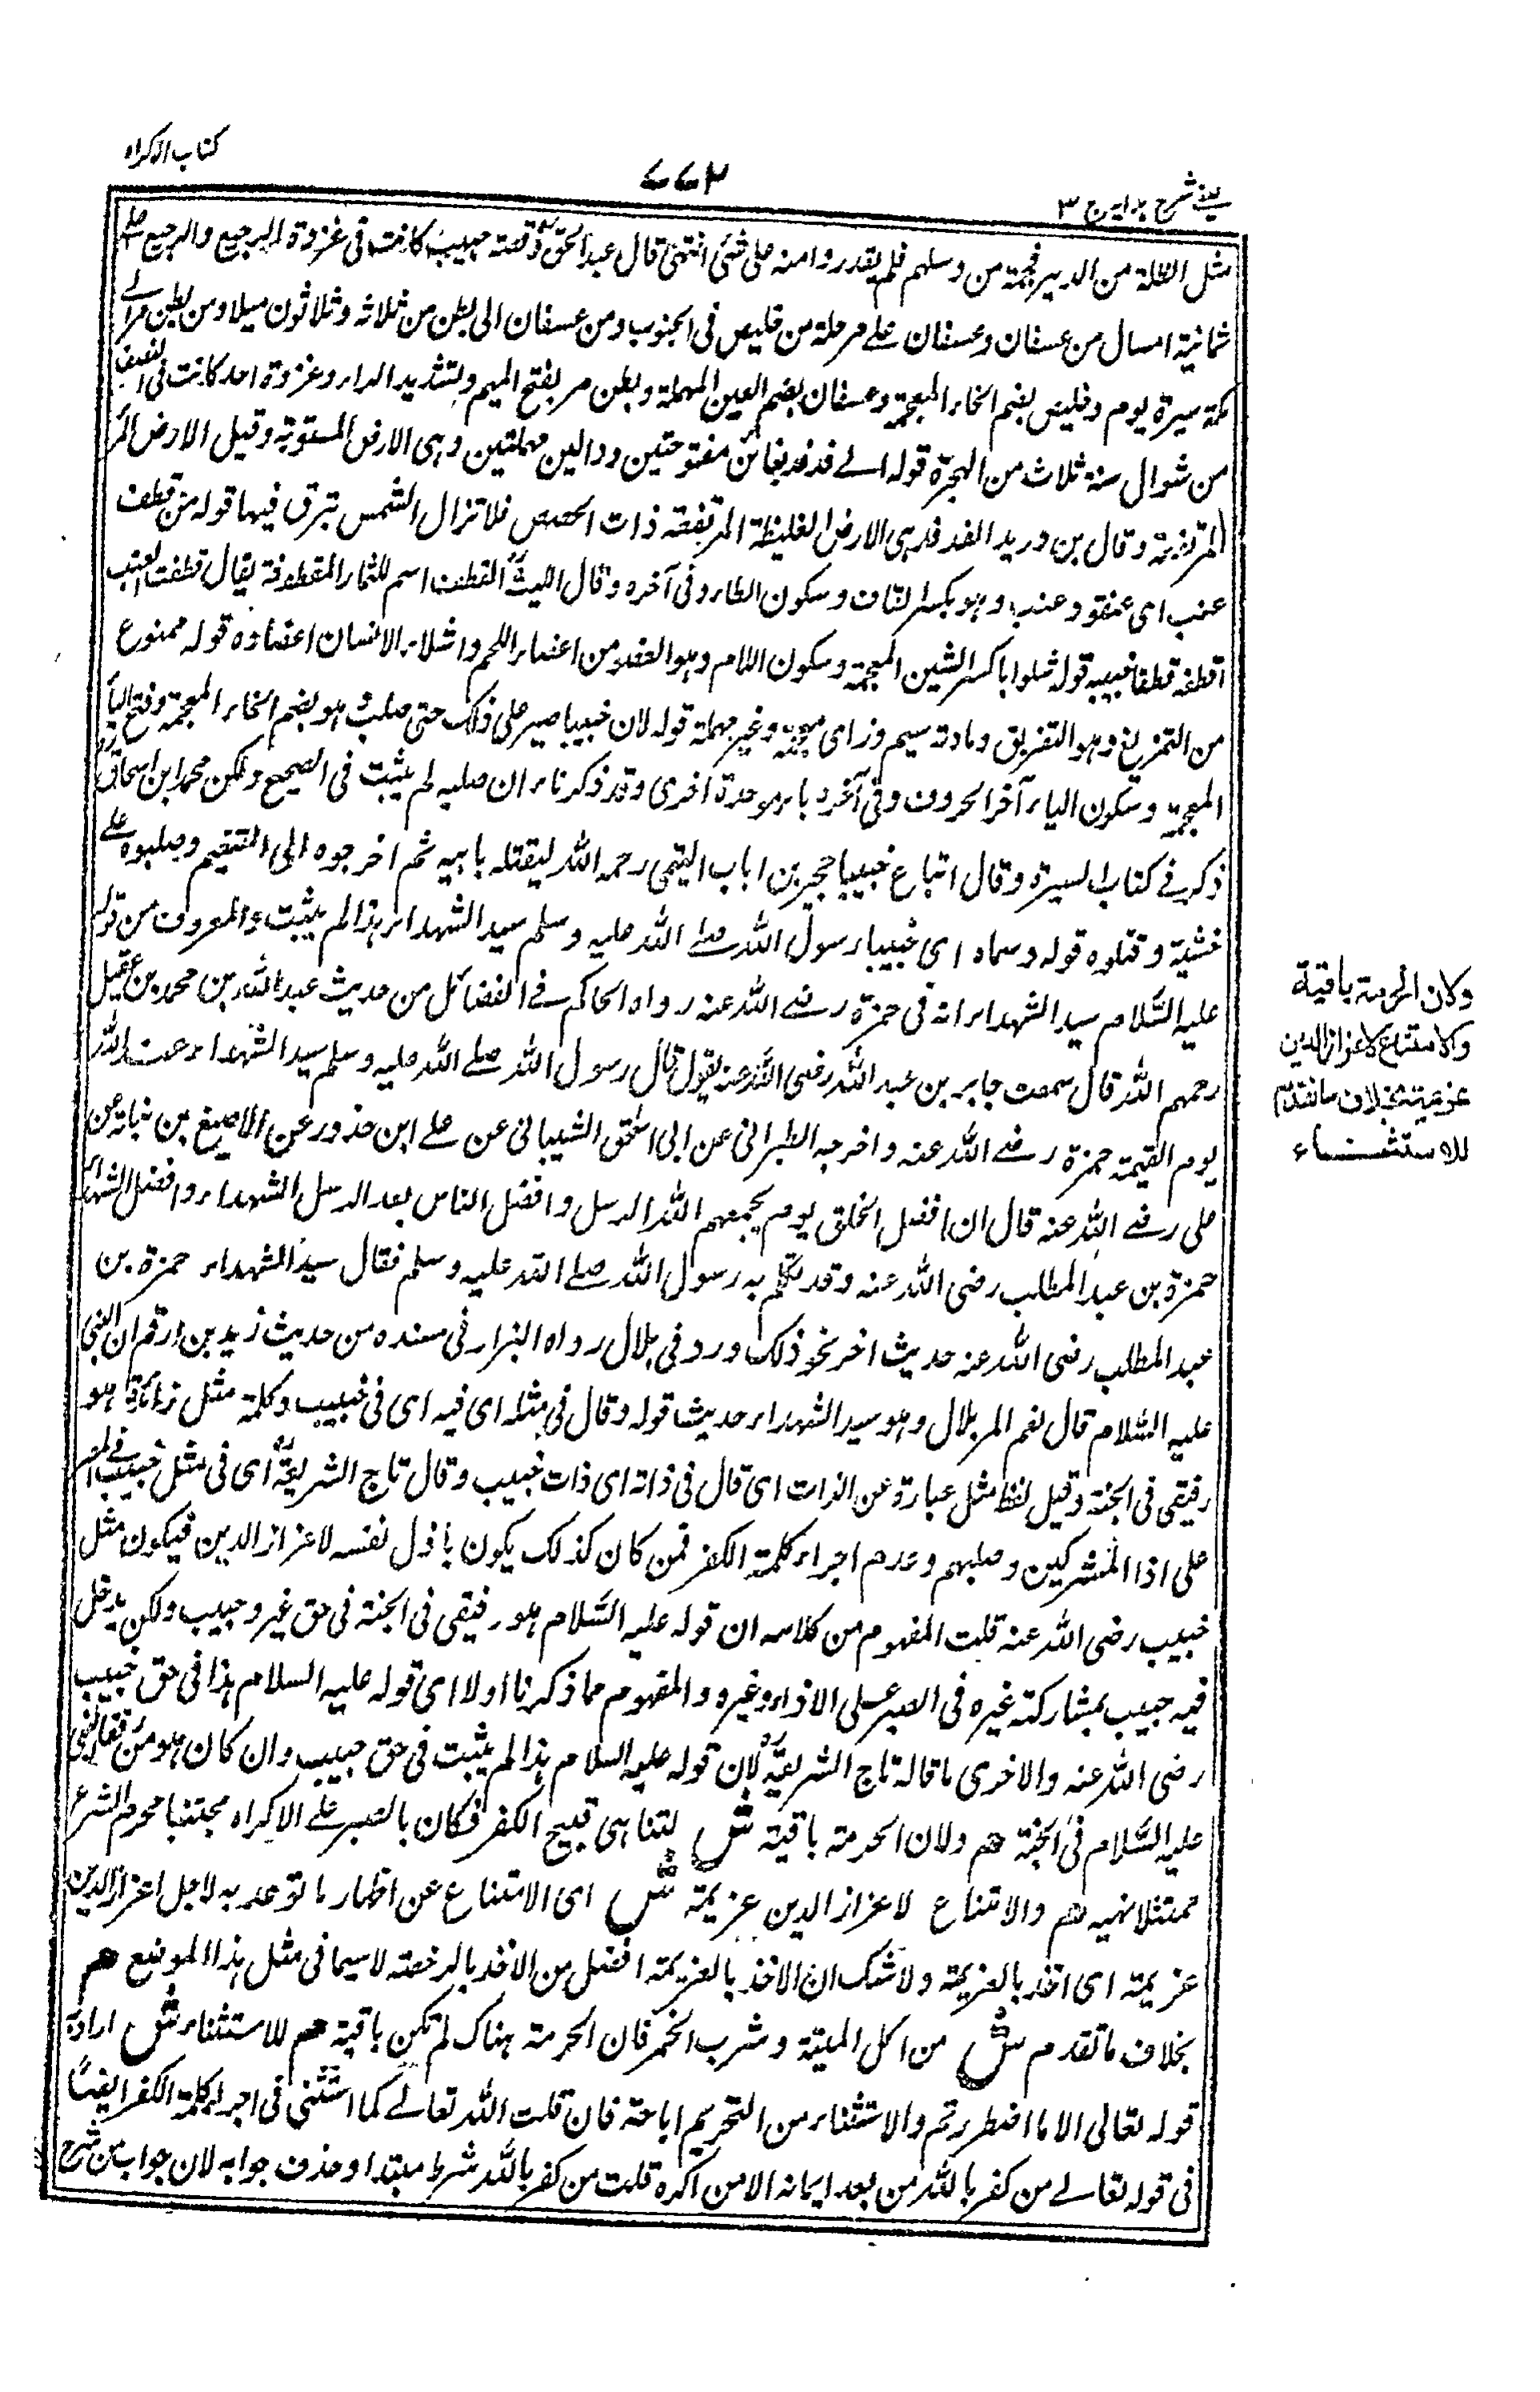 كتاب الاكراه
٧٧٢
عینی شرح ہدایہ ج ٣
مثل الظلة من الدبر فحمته من رسلهم فلم يقدروا منه على شئ انتهى قال عبد الحق وقصة حبيب كانت فى غزوة الرجيع والرجيع على
ثمانية اميال من عسفان وعسفان على مرحلة من خليص فى الجنوب ومن عسفان الى بطن مر ثلاثة وثلاثون ميلا ومن بطن مر الى
مكة سيرة يوم وخليص بضم الخاء المعجمة وعسفان بضم العين المهملة وبطن مر بفتح الميم وتشديد الراء وغزوة احد كانت فى النصف
من شوال سنة ثلاث من الهجرة قوله الى فدفد بفائين مفتوحتين ودالين مهملتين وهى الارض المستوية وقيل الارض
المرتفعة وقال بن دريد الفدفد هى الارض الغليظة المرتفعة ذات الحصص فلا تزال الشمس تبرق فيها قوله من قطف
عنب اى عنقود عنب وهو بكسر القاف وسكون الطاء وفى آخره وقال الليث القطف اسم للثمار المقطوفة يقال قطفت العنب
اقطفه قطفا خبيب قوله شلو بالكسر الشين المعجمة وسكون اللام وهو العضو من اعضاء اللحم واشلاء الانسان اعضاؤه قوله ممزع
من التمزيع وهو التفريق ومادته ميم وزاى معجمة وغير مهملة قوله لان خبيبا صبر على ذلك حتى صلب هو بضم الخاء المعجمة وفتح الباء
المعجمة وسكون الياء آخر الحروف وفى آخره باء موحدة اخرى وقد ذكرنا ان صلبه لم يثبت فى الصحيح ولكن محمد ابن اسحاق
ذكر فى كتاب السيرة وقال ابتاع خبيبا حجير بن اهاب التيمى رحمه الله ليقتله بابيه ثم اخرجوه الى التنعيم وصلبوه على
خشبة وقتلوه قوله وسماه اى خبيبا رسول الله صلے الله عليه وسلم سيد الشهداء هذا لم يثبت والمعروف من قوله
عليه السلام سيد الشهداء انه فى حمزة رضے الله عنه رواه الحاكم فى الفضائل من حديث عبد الله بن محمد بن عقيل
رحمهم الله قال سمعت جابر بن عبد الله رضى الله عنه يقول قال رسول الله صلے الله عليه وسلم سيد الشهداء عند الله
يوم القيمة حمزة رضے الله عنه واخرجه الطبرانى عن ابى اسحق الشيبانى عن على ابن حزور عن الاصبغ بن نباتة عن
على رضے الله عنه قال ان افضل الخلق يوم يجمعهم الله الرسل وافضل الناس بعد الرسل الشهداء وافضل الشهداء
حمزة بن عبد المطلب رضى الله عنه وقد تكلم به رسول الله صلے الله عليه وسلم فقال سيد الشهداء حمزة بن
عبد المطلب رضى الله عنه حديث اخر نحو ذلك ورد فى بلال رواه البزار فى مسنده من حديث زيد بن ارقم ان النبى
عليه السلام قال نعم المر بلال وهو سيد الشهداء حديث قوله وقال فى مثله اى فيه اى فى خبيب وكلمة مثل زائدة هو
رفيقى فى الجنة وقيل لفظ مثل عبارة عن الذات اى قال فى ذاته اى ذات خبيب وقال تاج الشريعة اى فى مثل خبيب فى الصبر
على اذا المشركين وصلبهم وعدم اجراء كلمة الكفر فمن كان كذلك يكون باذل نفسه لاعزاز الدين فيكون مثل
خبيب رضى الله عنه قلت المفهوم من كلامه ان قوله عليه السلام هو رفيقى فى الجنة فى حق غير وحبيب ولكن يدخل
فيه حبيب بمشاركة غيره فى الصبر على الاذاء وغيره والمفهوم مما ذكرنا اولا اى قوله عليه السلام هذا فى حق خبيب
رضى الله عنه والاخرى ما قاله تاج الشريعة لان قوله عليه السلام هذا لم يثبت فى حق حبيب وان كان هو من رفقاء النبى
عليه السلام فى الجنة هم ولان الحرمة باقية ش لتناهى قبيح الكفر فكان بالصبر على الاكراه مجتنبا محرم الشرع
ممتثلا نهيه هم والامتناع لاعزاز الدين عزيمة ش اى الامتناع عن اظهار ما توعد به لاجل اعزاز الدين
عزيمة اى اخذ بالعزيمة ولا شك ان الاخذ بالعزيمة افضل من الاخذ بالرخصة لاسيما فى مثل هذا الموضع هم
بخلاف ما تقدم ش من اكل الميتة وشرب الخمر فان الحرمة هناك لم تكن باقية هم للاستثناء ش اراد به
قوله تعالى الا ما اضطررتم والاستثناء من التحريم اباحة فان قلت الله تعالے كما استثنى فى اجراء كلمة الكفر ايضا
فى قوله تعالے من كفر بالله من بعد ايمانه الا من اكره قلت من كفر بالله شرط مبتدا وحذف جوابه لان جواب من شرح
وكان الحرمة باقية
والامتناع لاعزاز الدين
عزيمة بخلاف ما تقدم
للاستثناء